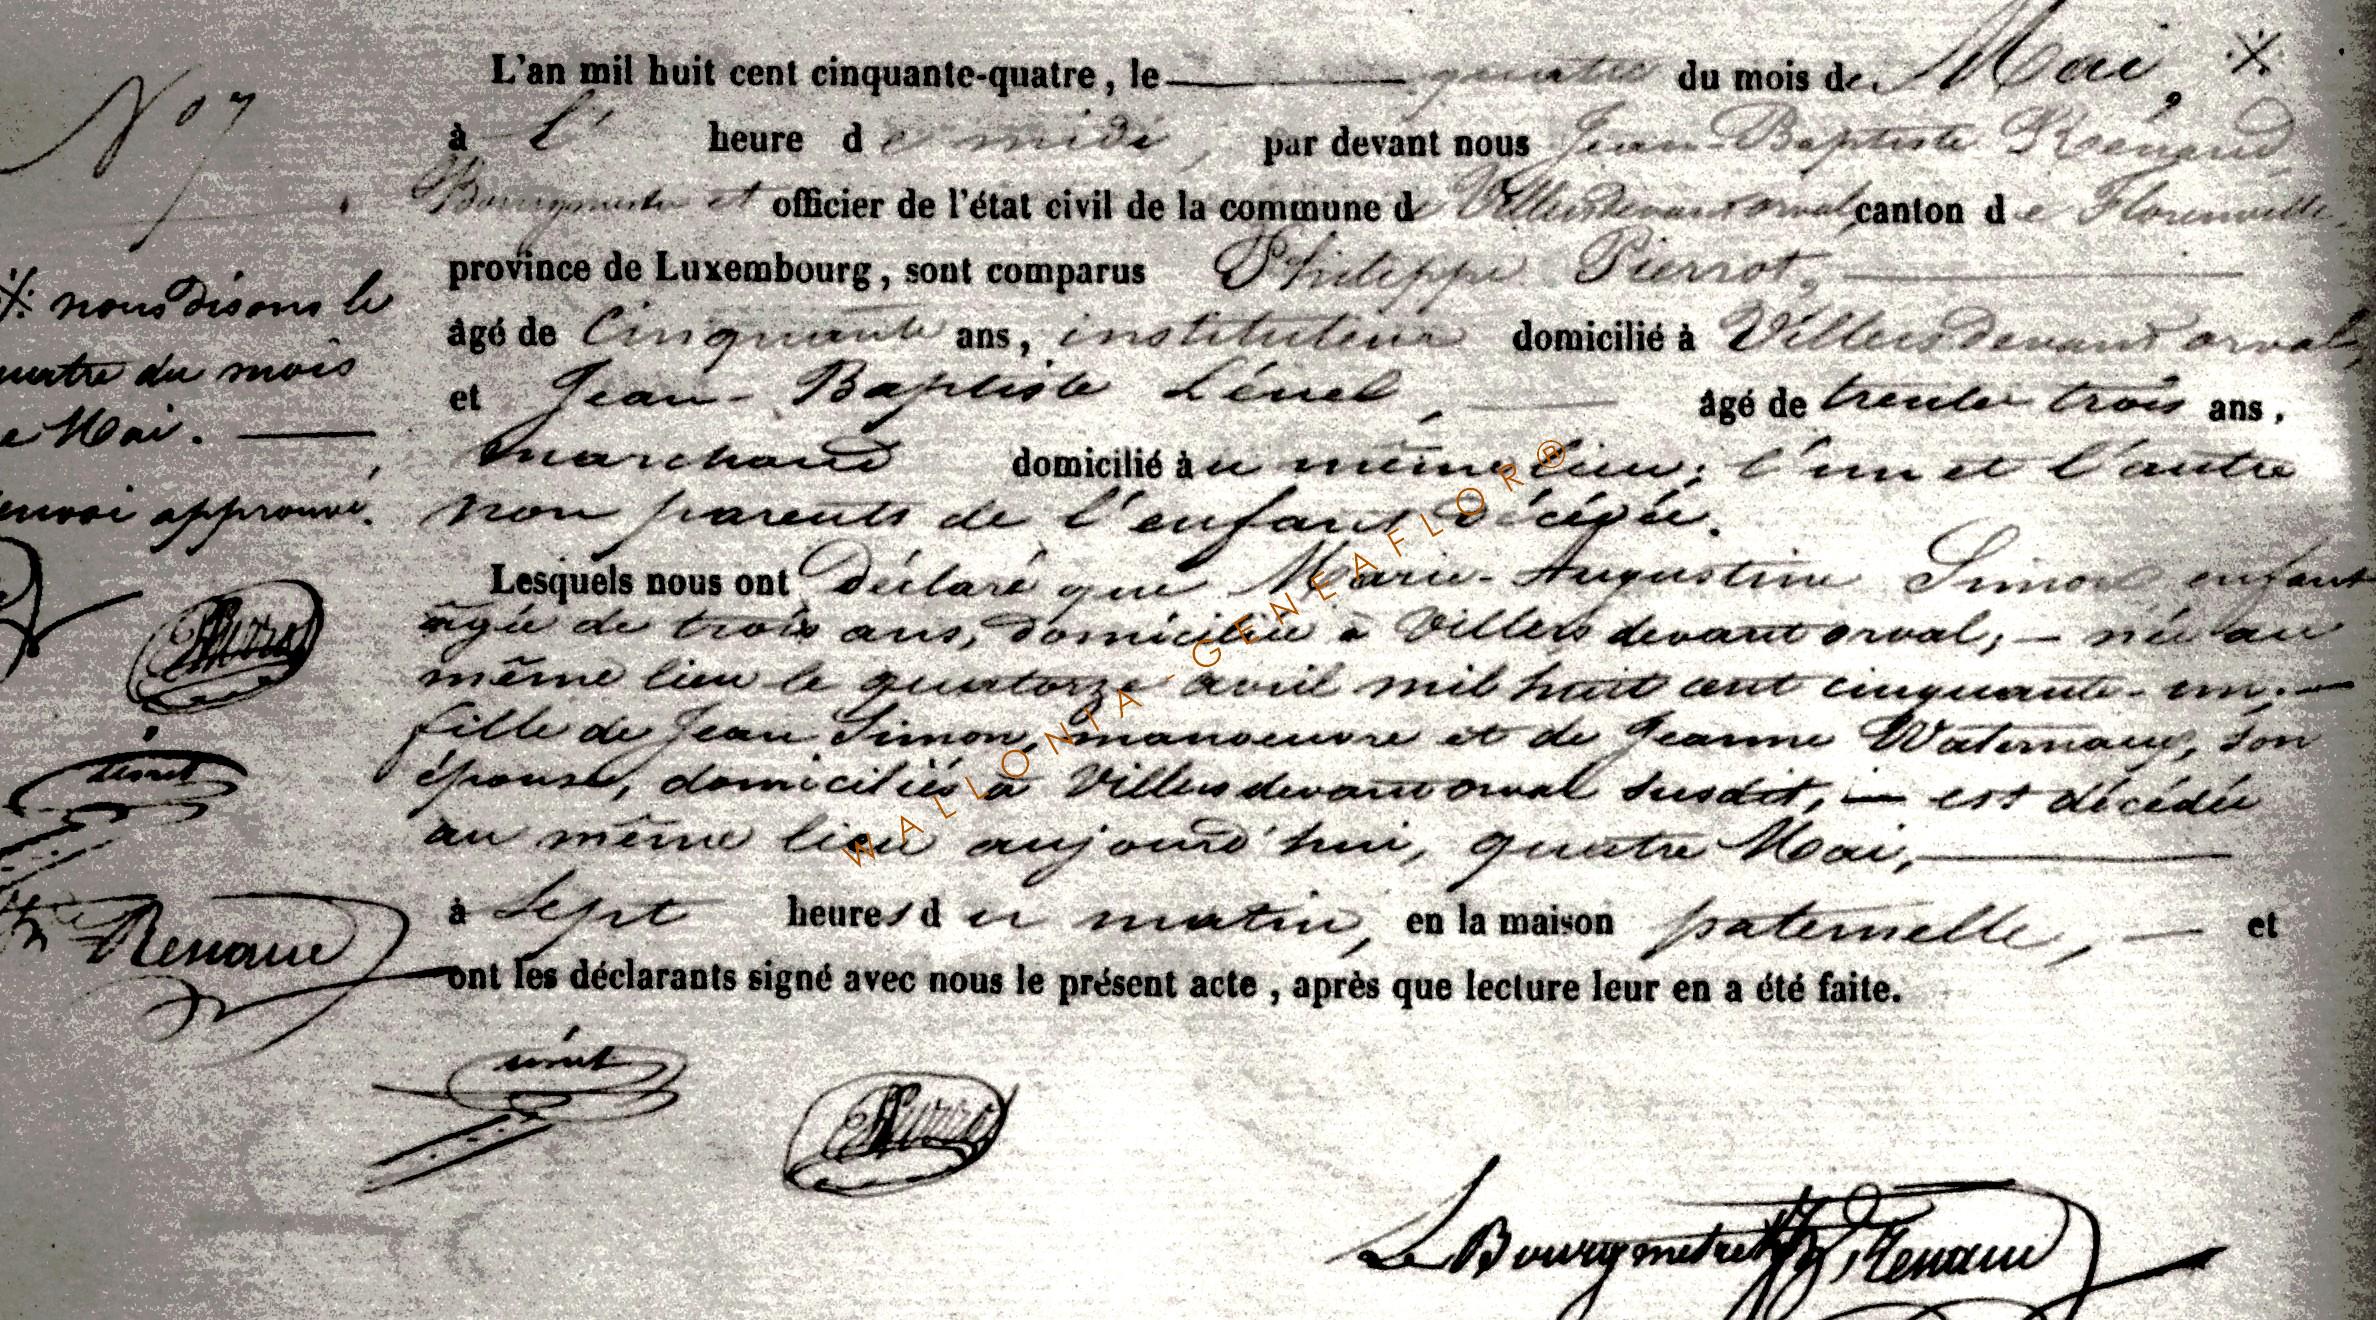 N° 7
L'an mil huit cent cinquante-quatre, le quatre du mois de Mai, ⁒
à l' heure de midi, par devant nous Jean-Baptiste Rénaud,
Bourgmestre et officier de l'état civil de la commune de Villersdevantorval, canton de Florenville,
province de Luxembourg, sont comparus Philippe Pierrot,
âgé de Cinquante ans, instituteur domicilié à Villersdevant orval,
et Jean-Baptiste Lénel, âgé de trente trois ans,
marchand domicilié au même lieu; l'un et l'autre
non parents de l'enfant décédée.
Lesquels nous ont déclaré que Marie-Augustine Simon enfant
âgée de trois ans, domiciliée à Villersdevantorval; — née au
même lieu le quatorze avril mil huit cent cinquante-un; —
fille de Jean Simon, manoeuvre et de Jeanne Waternaux, son
épouse, domiciliés à Villersdevantorval susdit, — est décédée
au même lieu aujourd'hui, quatre Mai,
à Sept heures du matin, en la maison paternelle, — et
ont les déclarants signé avec nous le présent acte, après que lecture leur en a été faite.
⁒ nous disons le
quatre du mois
de Mai. —
renvoi approuvé.
Pierrot
Renaud
Pierrot
Le Bourgmetre Renaud
WALLONIA - GENEAFLOR ®